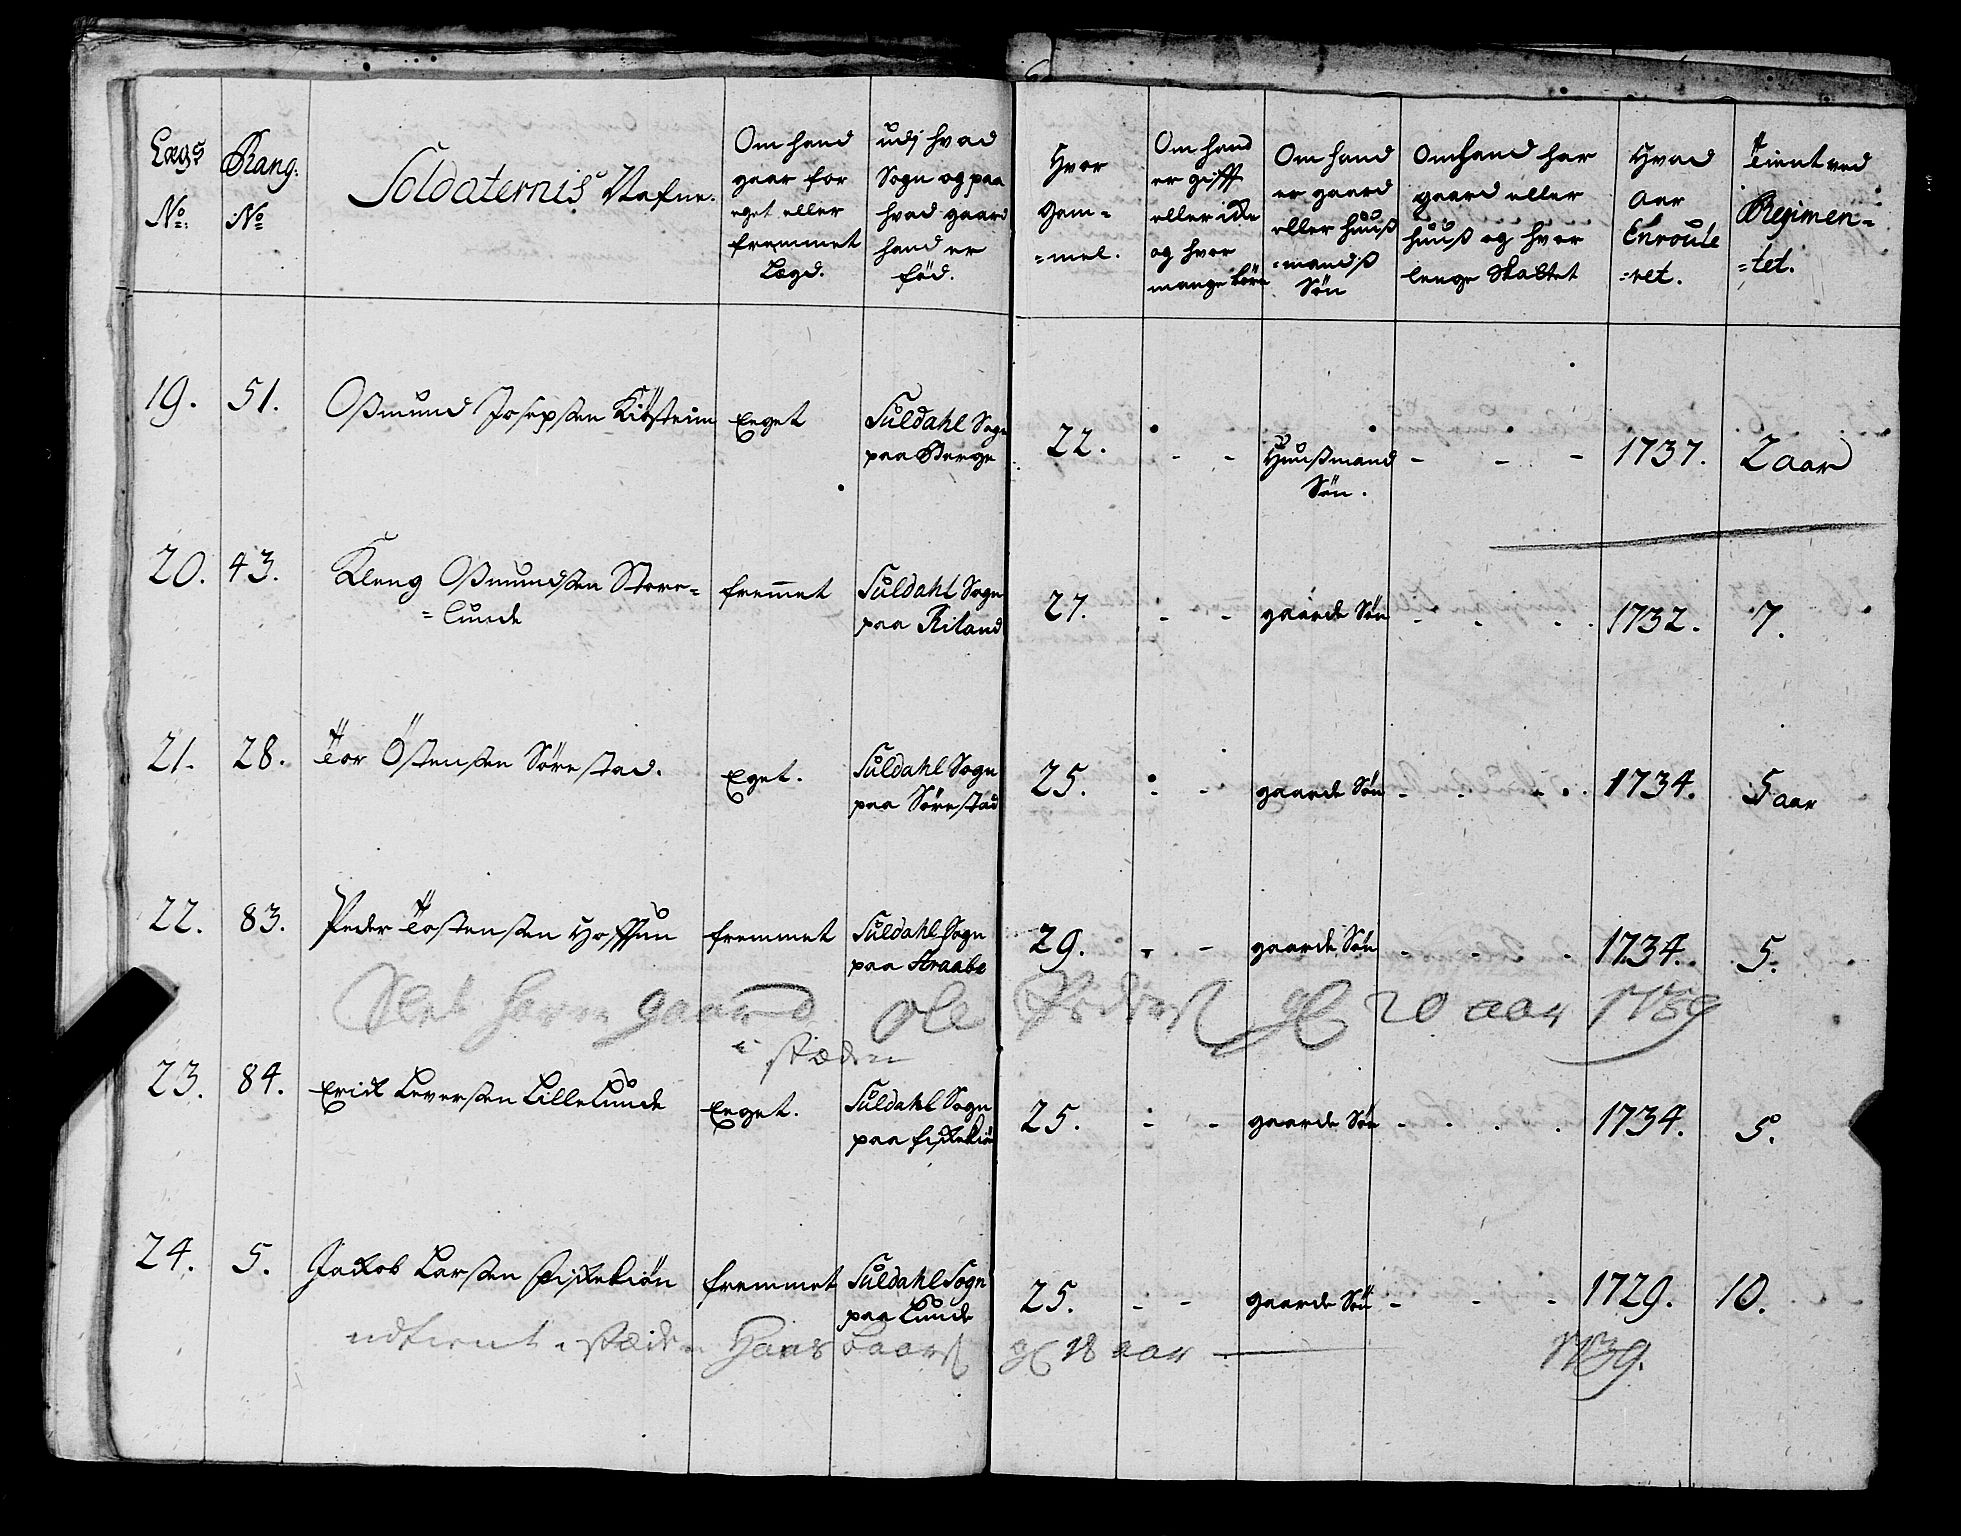 Lægs No: Rang. No Soldaternis Nafne. Om hand gaar for eget eller fremmet Lægd. udj hvad Sogn og paa hvad gaard hand er föd. Hvor gam= =mel. Om hand er gifft eller icke og hvor mange börn Om hand er gaard eller huuß =mandß Sön Om hand har gaard eller huuß og hvor lenge Skattet Hvad Aar Enroule =ret. Tient ved Regimen= =tet.
19. 51. Oßmund Josepsen Eeget Suldahl Sogn
paa Berge 22. - - Huußmand - - - 1737. 2 aar
Sön.
20. 43. Kleng Oßmundsen Store= fremmet Suldahl Sogn
=Lunde paa Riland 27. - - gaarde Sön - - - 1732. 7.
21. 28. Tor Östensen Sörestad. Eget. Suldahl Sogn
paa Sörestad 25. - - gaarde Sön - - - 1734. 5 aar
22. 83. Peder Tostensen Hoffuu fremmet Suldahl Sogn
paa 29. - - gaarde Sön - - - 1734. 5.
gaard Ole 20 aar 1739
i stæden
23. 84. Erick Leversen Lille Lunde Eeget. Suldahl Sogn
paa 25. - - gaarde Sön - - - 1734. 5.
24. 5. Jackob Larsen fremmet Suldahl Sogn
paa Lunde 25. - - gaarde Sön - - - 1729. 10.
udtient i stæden Hans 18 aar 1739.